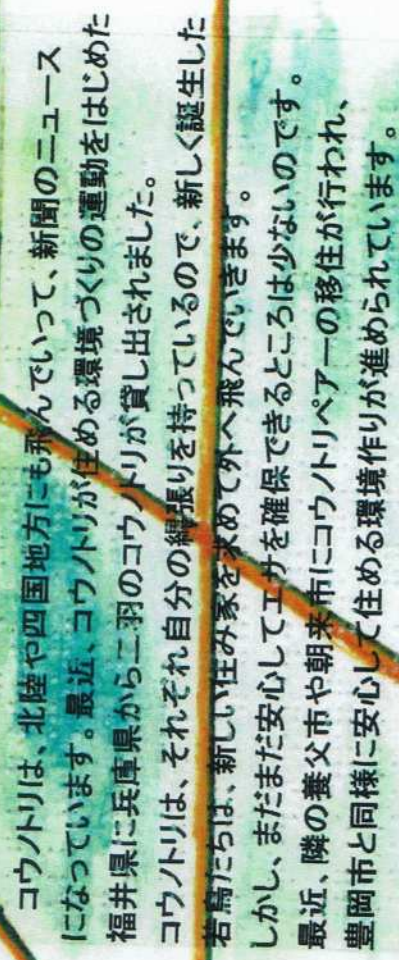 コウノトリは、北陸や四国地方にも飛んでいって、新聞のニュース
になっています。最近、コウノトリが住める環境づくりの運動をはじめた
福井県に兵庫県から二羽のコウノトリが貸し出されました。
コウノトリは、それぞれ自分の縄張りを持っているので、新しく誕生した
若鳥たちは、新しい住み家を求めて外へ飛んでいきます。
しかし、まだまだ安心してエサを確保できるところは少ないのです。
最近、隣の養父市や朝来市にコウノトリペアーの移住が行われ、
豊岡市と同様に安心して住める環境作りが進められています。